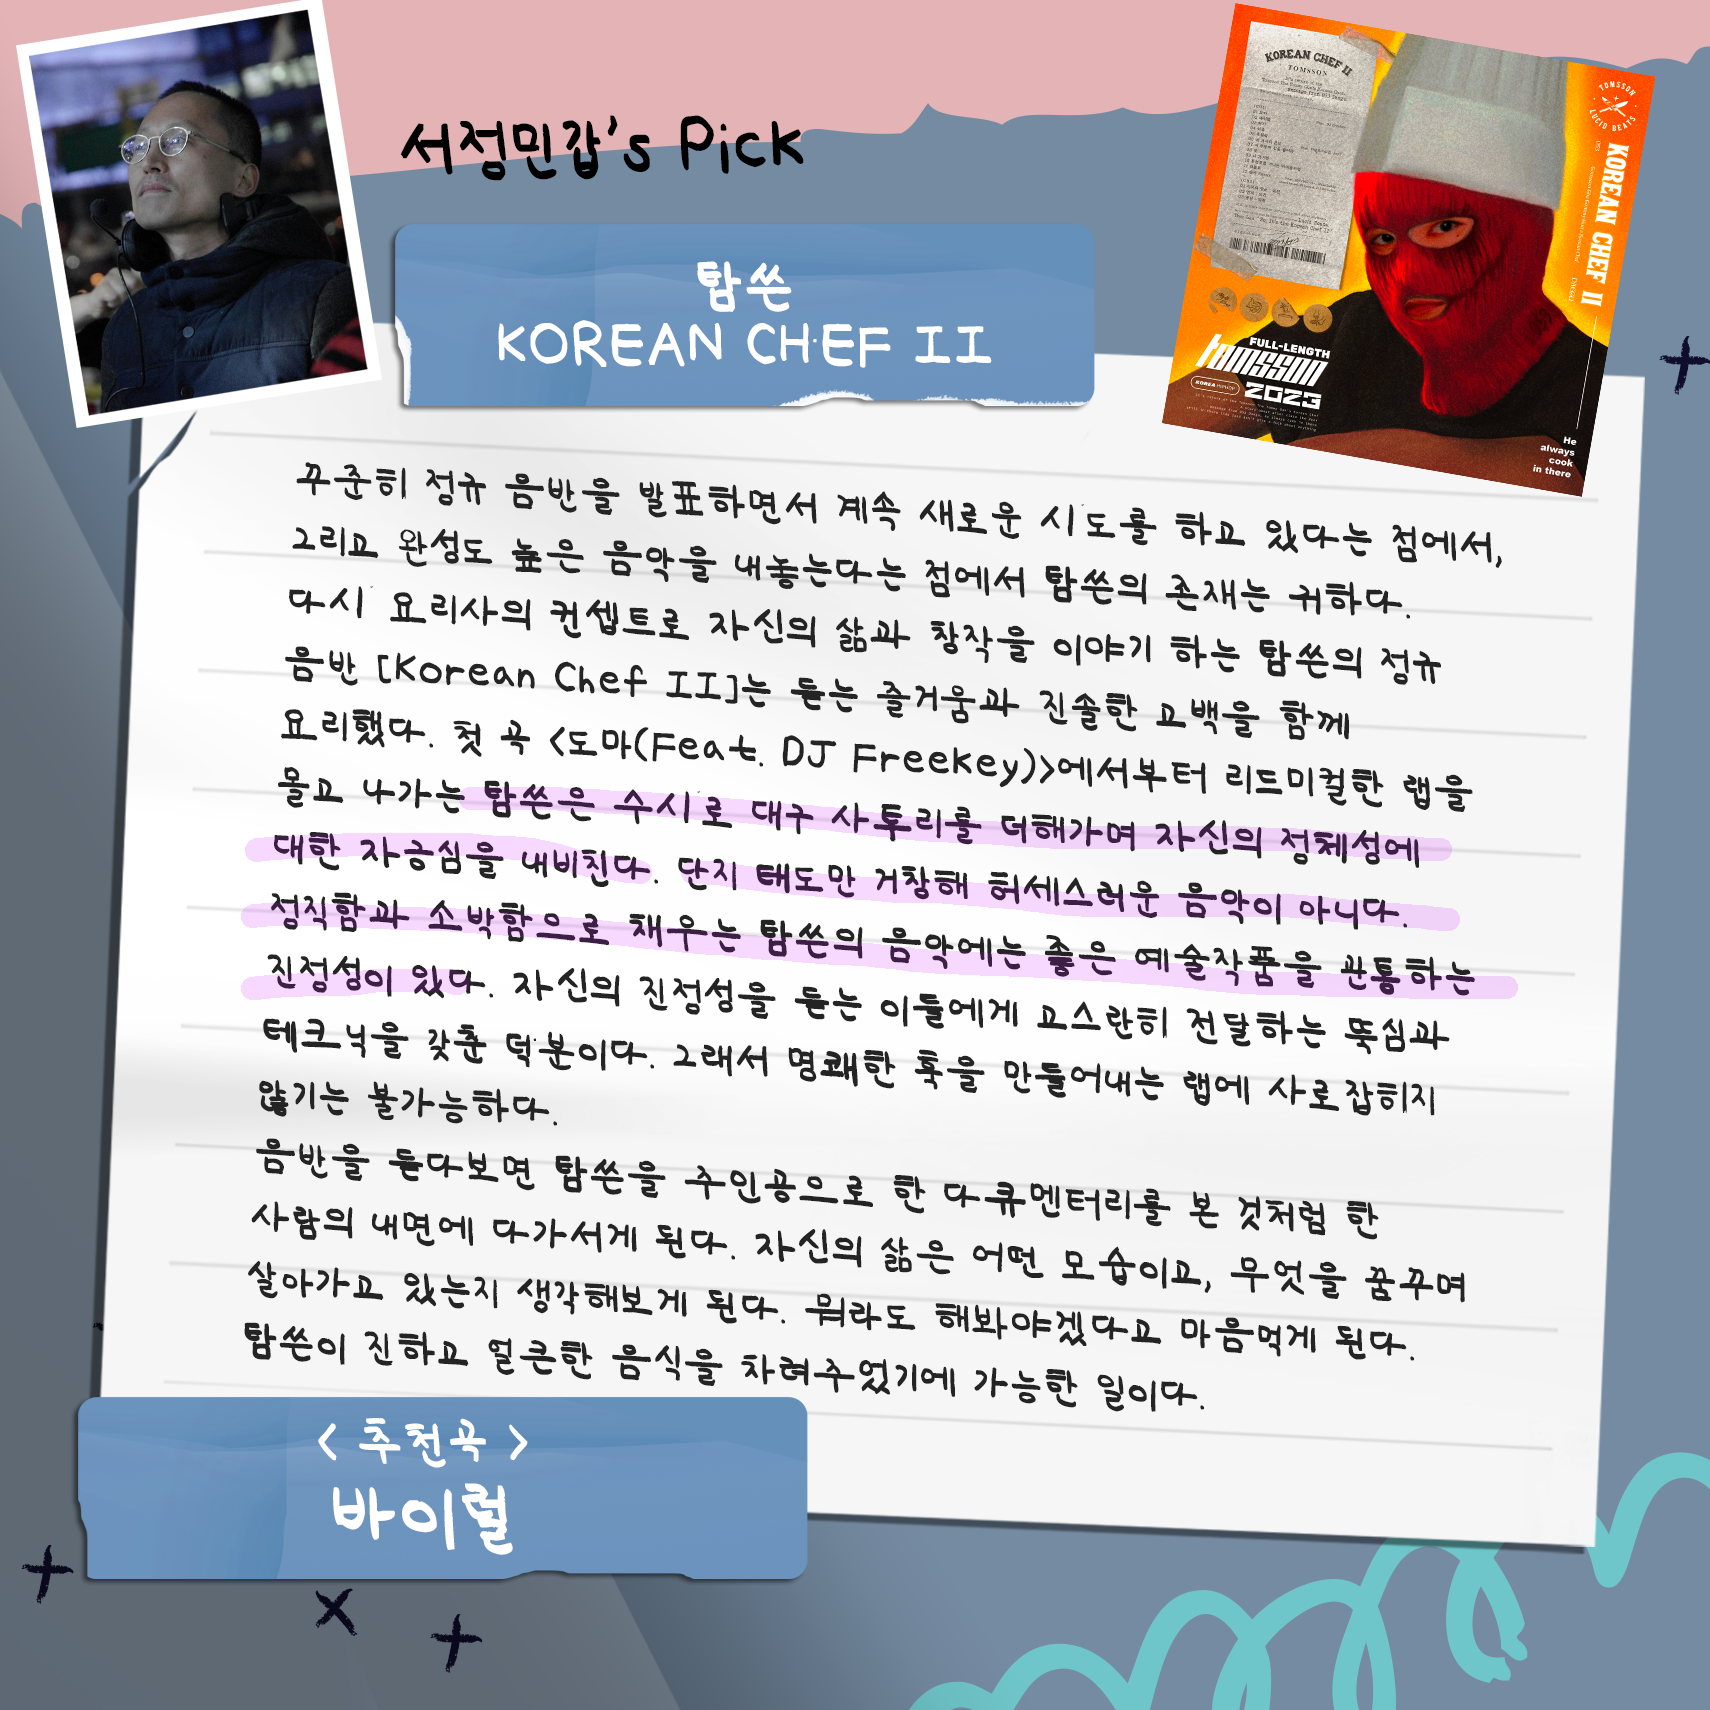 서정민갑's Pick
탐쓴
KOREAN CHEF II
KOREAN CHEF II
TOMSSON
TOMSSON
LUCID BEATS
KOREAN CHEF II
FULL-LENGTH
tomsson
KOREA HIPHOP
2023
He
always
cook
in there
꾸준히 정규 음반을 발표하면서 계속 새로운 시도를 하고 있다는 점에서,
그리고 완성도 높은 음악을 내놓는다는 점에서 탐쓴의 존재는 귀하다.
다시 요리사의 컨셉트로 자신의 삶과 창작을 이야기 하는 탐쓴의 정규
음반 [Korean Chef II]는 듣는 즐거움과 진솔한 고백을 함께
요리했다. 첫 곡 <도마(Feat. DJ Freekey)>에서부터 리드미컬한 랩을
몰고 나가는 탐쓴은 수시로 대구 사투리를 더해가며 자신의 정체성에
대한 자긍심을 내비친다. 단지 태도만 거창해 허세스러운 음악이 아니다.
정직함과 소박함으로 채우는 탐쓴의 음악에는 좋은 예술작품을 관통하는
진정성이 있다. 자신의 진정성을 듣는 이들에게 고스란히 전달하는 뚝심과
테크닉을 갖춘 덕분이다. 그래서 명쾌한 훅을 만들어내는 랩에 사로잡히지
않기는 불가능하다.
음반을 듣다보면 탐쓴을 주인공으로 한 다큐멘터리를 본 것처럼 한
사람의 내면에 다가서게 된다. 자신의 삶은 어떤 모습이고, 무엇을 꿈꾸며
살아가고 있는지 생각해보게 된다. 뭐라도 해봐야겠다고 마음먹게 된다.
탐쓴이 진하고 얼큰한 음식을 차려주었기에 가능한 일이다.
< 추천곡 >
바이럴